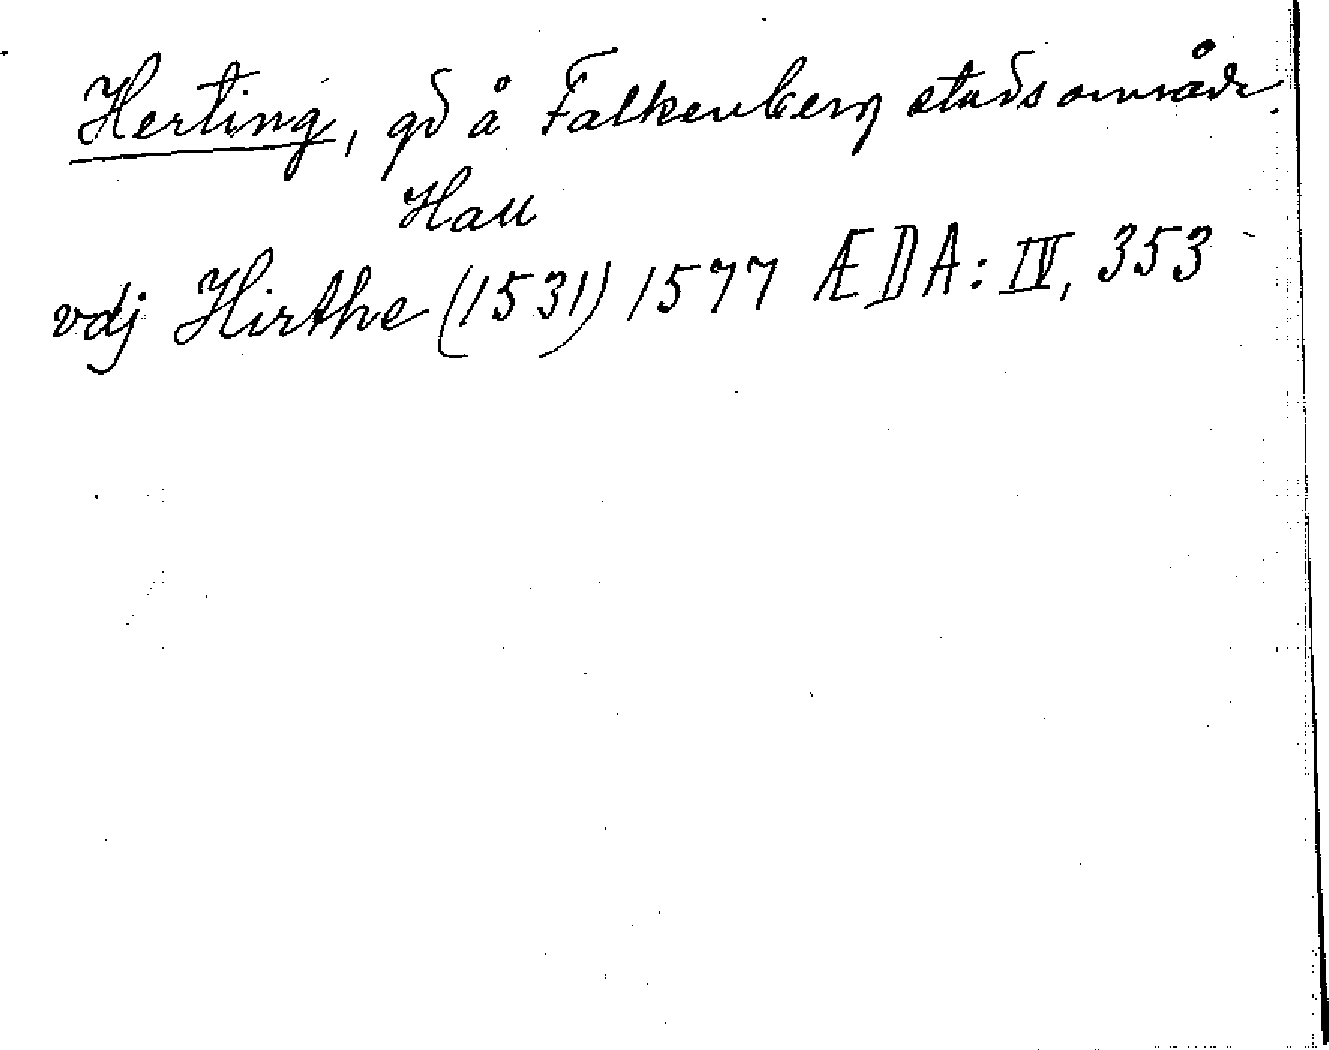 Herting, gd å Falkenberg stadsområde.
Hall
vdj Hirthe (1531) 1577 ÆDA: IV, 353